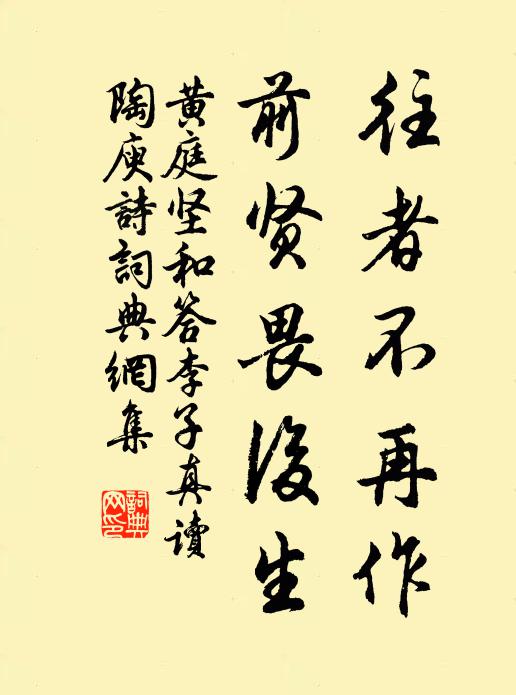 往者不再作
前贤畏後生
黄庭坚和答李子真读
陶庾詩詞典網集
詞典网印